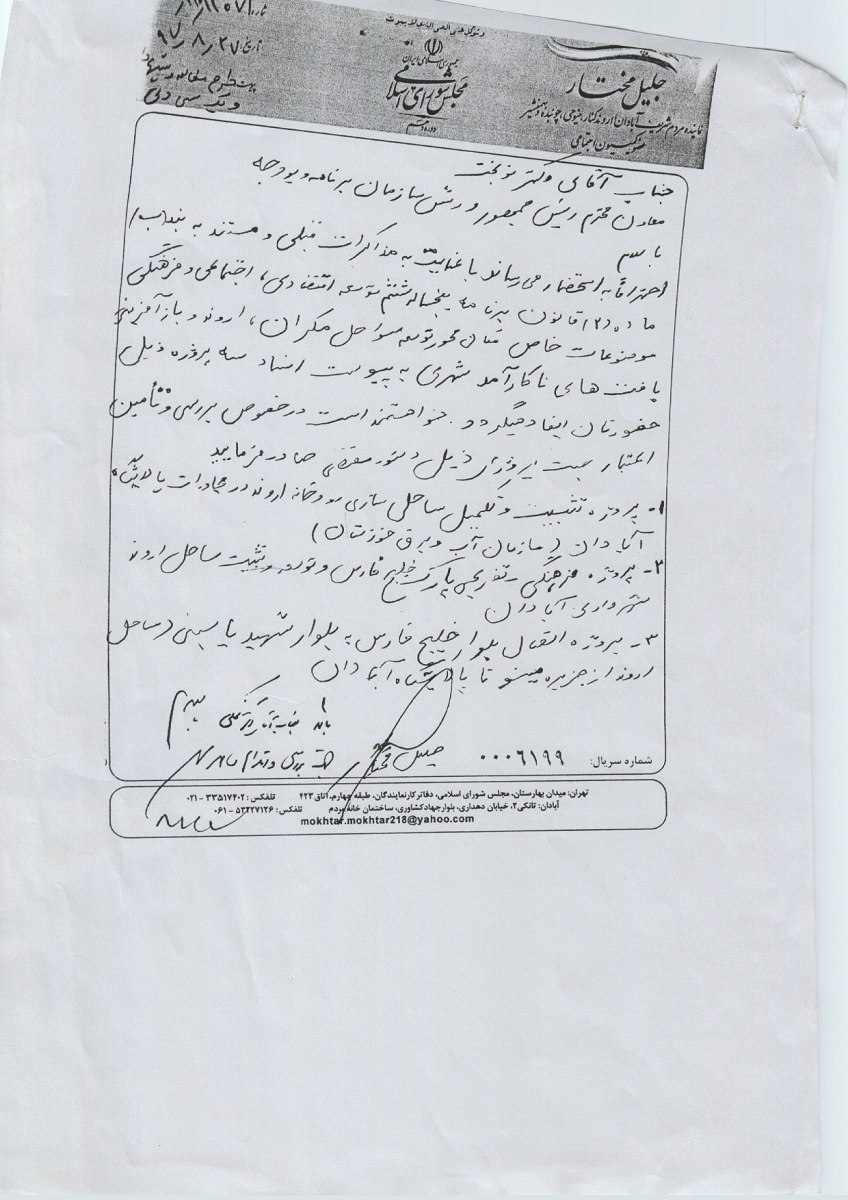 و توکل علی الحی الذی لا یموت
جمهوری اسلامی ایران
مجلس شورای اسلامی
جلیل مختار
نماینده مردم شریف آبادان، اروندکنار، مینوبی، چوئبده و بهمنشیر
عضو کمیسیون اجتماعی
تاریخ: ۹۷/۸/۲۷
جناب آقای دکتر نوبخت
معاون محترم رئیس جمهور و رئیس سازمان برنامه و بودجه
با سلام
احتراماً به استحضار می رساند با عنایت به مذاکرات قبلی و مستند به بند الف/
ماده (۲) قانون برنامه پنجساله ششم توسعه اقتصادی، اجتماعی و فرهنگی
موضوعات خاص مکان محور توسعه سواحل مکران، اروند و بازآفرینی
بافت های ناکارآمد شهری به پیوست اسناد سه پروژه ذیل
حضورتان ایفاد میگردد. خواهشمند است در خصوص بررسی و تأمین
اعتبار جهت پروژه های ذیل دستور مقتضی صادر فرمایید
۱- پروژه تثبیت و تکمیل ساحل سازی رودخانه اروند در مجاورت پالایشگاه
آبادان (سازمان آب و برق خوزستان)
۲- پروژه فرهنگی - تفریحی پارک خلیج فارس و توسعه و تثبیت ساحل اروند
شهرداری آبادان
۳- پروژه اتصال بلوار خلیج فارس به بلوار شهید یاسینی (ساحل
اروند از جزیره مینو تا پالایشگاه آبادان
جلیل مختار
شماره سریال: ۰۰۰۶۱۹۹
تهران: میدان بهارستان، مجلس شورای اسلامی، دفاتر کار نمایندگان، طبقه چهارم، اتاق ۴۲۳ تلفکس: ۳۳۵۱۷۴۰۲ - ۰۲۱
آبادان: تانکی۲، خیابان دهداری، بلوار جهاد کشاوری، ساختمان خانه مردم تلفکس: ۵۳۲۲۷۱۲۶ - ۰۶۱
mokhtar.mokhtar218@yahoo.com